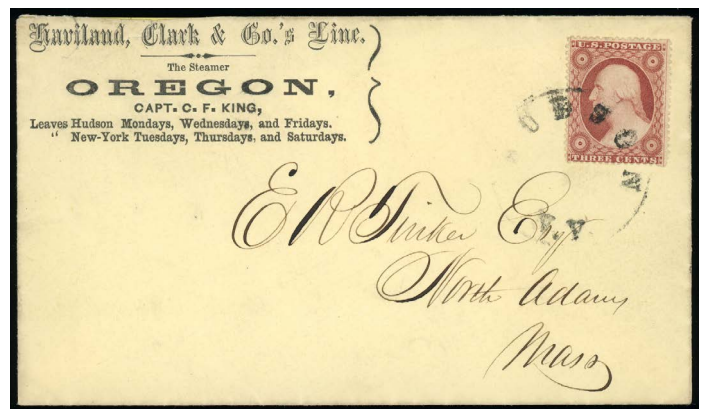 Haviland, Clark & Co.'s Line.
The Steamer
OREGON,
CAPT. C. F. KING,
Leaves Hudson Mondays, Wednesdays, and Fridays.
" New-York Tuesdays, Thursdays, and Saturdays.
U.S. POSTAGE
THREE CENTS
E R Tinker Esqr
North Adams
Mass